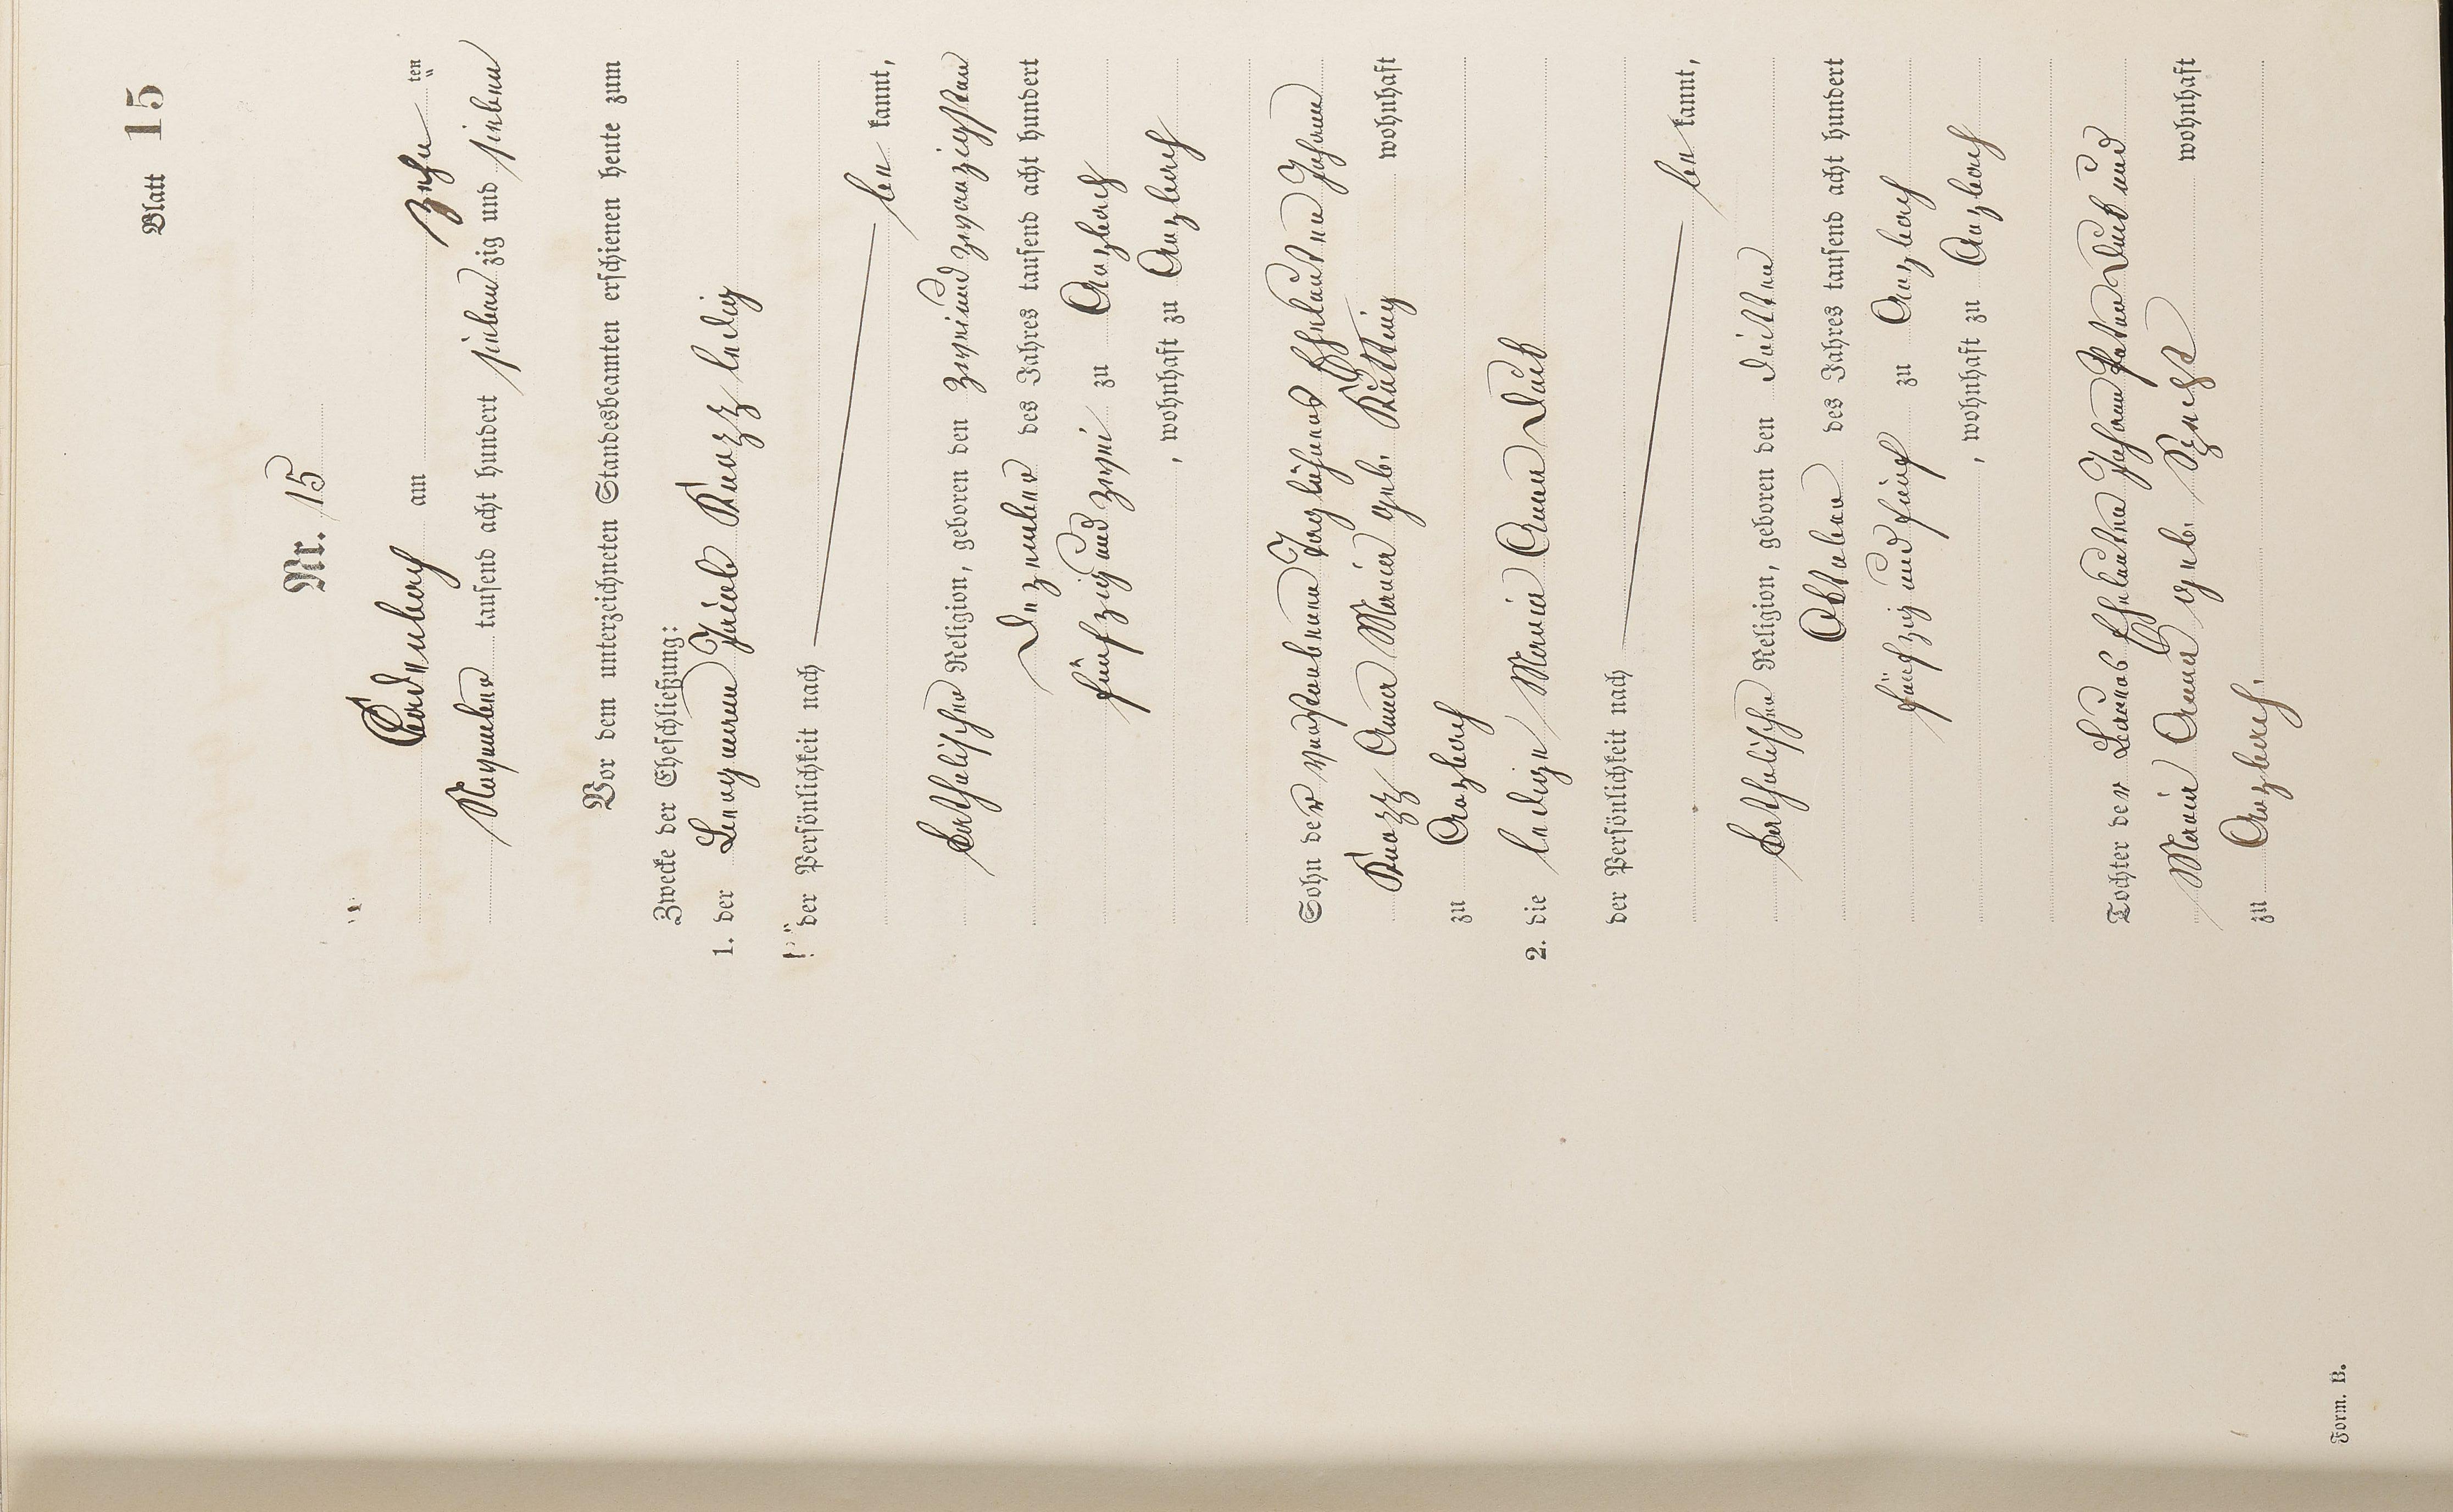 Blatt 15
Nr. 15
Cadenbach am zehn ten
November tausend acht hundert sieben zig und sieben
Vor dem unterzeichneten Standesbeamten erschienen heute zum
Zwecke der Eheschließung:
1. der Bergmann Jacob Knopp ledig
der Persönlichkeit nach
be kannt,
katholischer Religion, geboren den zweiundzwanzigsten
Dezember des Jahres tausend acht hundert
fünfzig und zwei zu Arzbach
, wohnhaft zu Arzbach
Sohn der verstorbenen Eheleuten Johann
Anna Maria geb. wohnhaft
zu Arzbach
2. die ledige Maria Anna
der Persönlichkeit nach
be kannt,
katholischer Religion, geboren den dritten
Oktober des Jahres tausend acht hundert
fünfzig und fünf zu Arzbach
, wohnhaft zu Arzbach
Tochter der Eheleuten Johann Peter und
Maria Anna geb. wohnhaft
zu Arzbach.
Form. B.